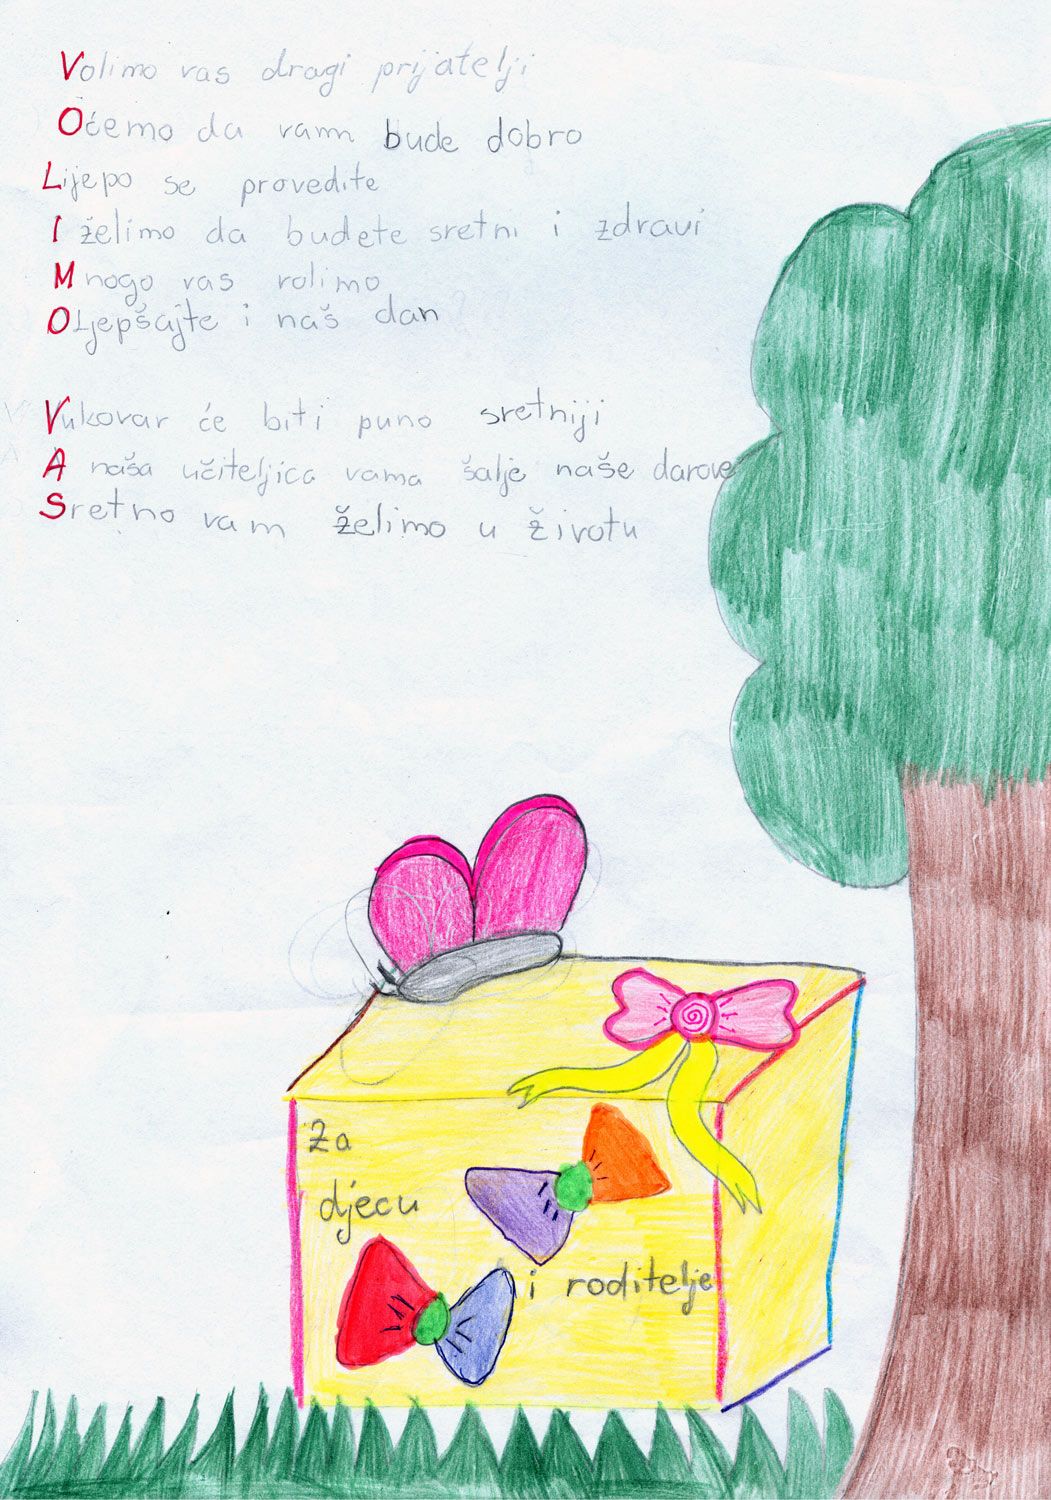 Volimo vas dragi prijatelji
Oćemo da vam bude dobro
Lijepo se provedite
I želimo da budete sretni i zdravi
Mnogo vas volimo
OLjepšajte i naš dan
Vukovar će biti puno sretniji
A naša učiteljica vama šalje naše darove
Sretno vam želimo u životu
Za
djecu
i roditelje